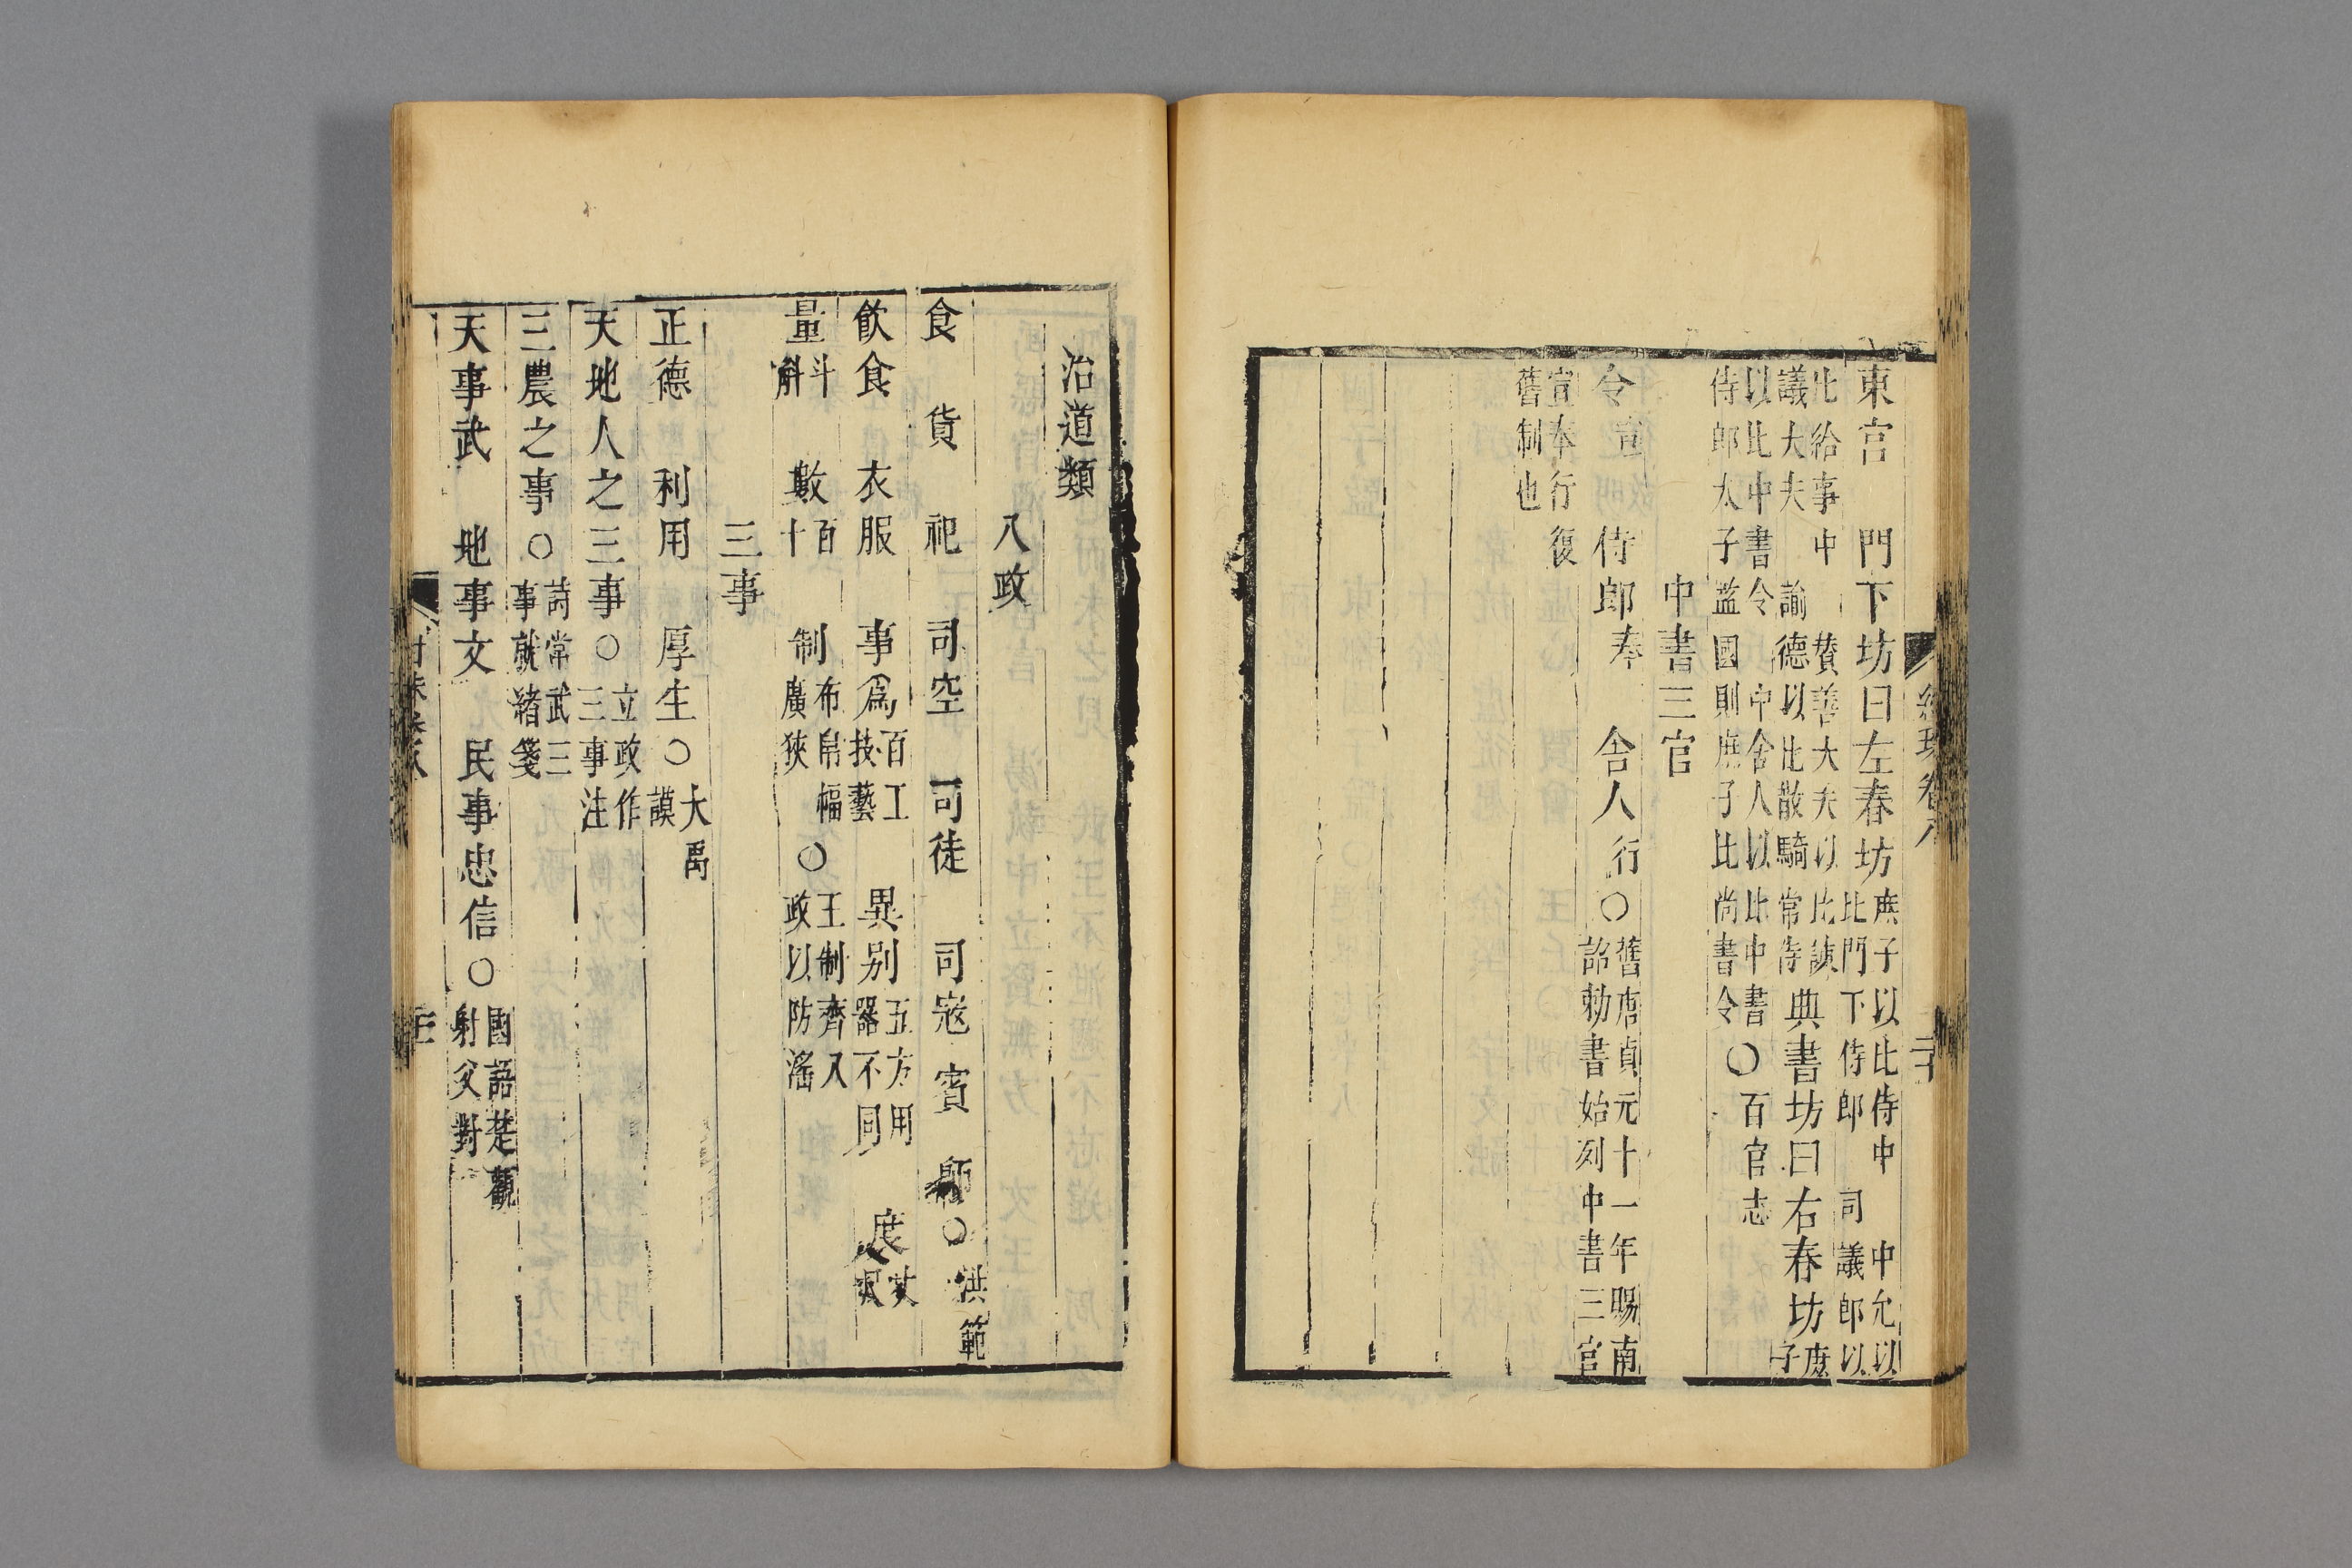 東宮　門下坊曰左春坊庶子以比侍中　中允以
比門下侍郎　司議郎以
比給事中　贊善大夫以比諫
議大夫　諭德以比散騎常侍　典書坊曰右春坊庶
子
以比中書令　中舍人以比中書
侍郎太子監國則庶子比尚書令〇百官志
中書三官
令宣　侍郎奉　舍人行〇舊唐貞元十一年賜南
詔勑書始列中書三官
宣奉行復
舊制也
治道類
八政
食　貨　祀　司空　司徒　司寇　賓　師〇洪範
飲食　衣服　事爲百工
技藝　異别五方用
器不同　度丈
尺
量斗
斛　數百
十　制布帛幅
廣狹〇王制齊八
政以防滛
三事
正德　利用　厚生〇大禹
謨
天地人之三事〇立政作
三事注
三農之事〇詩常武三
事就緒箋
天事武　地事文　民事忠信〇國語楚觀
射父對